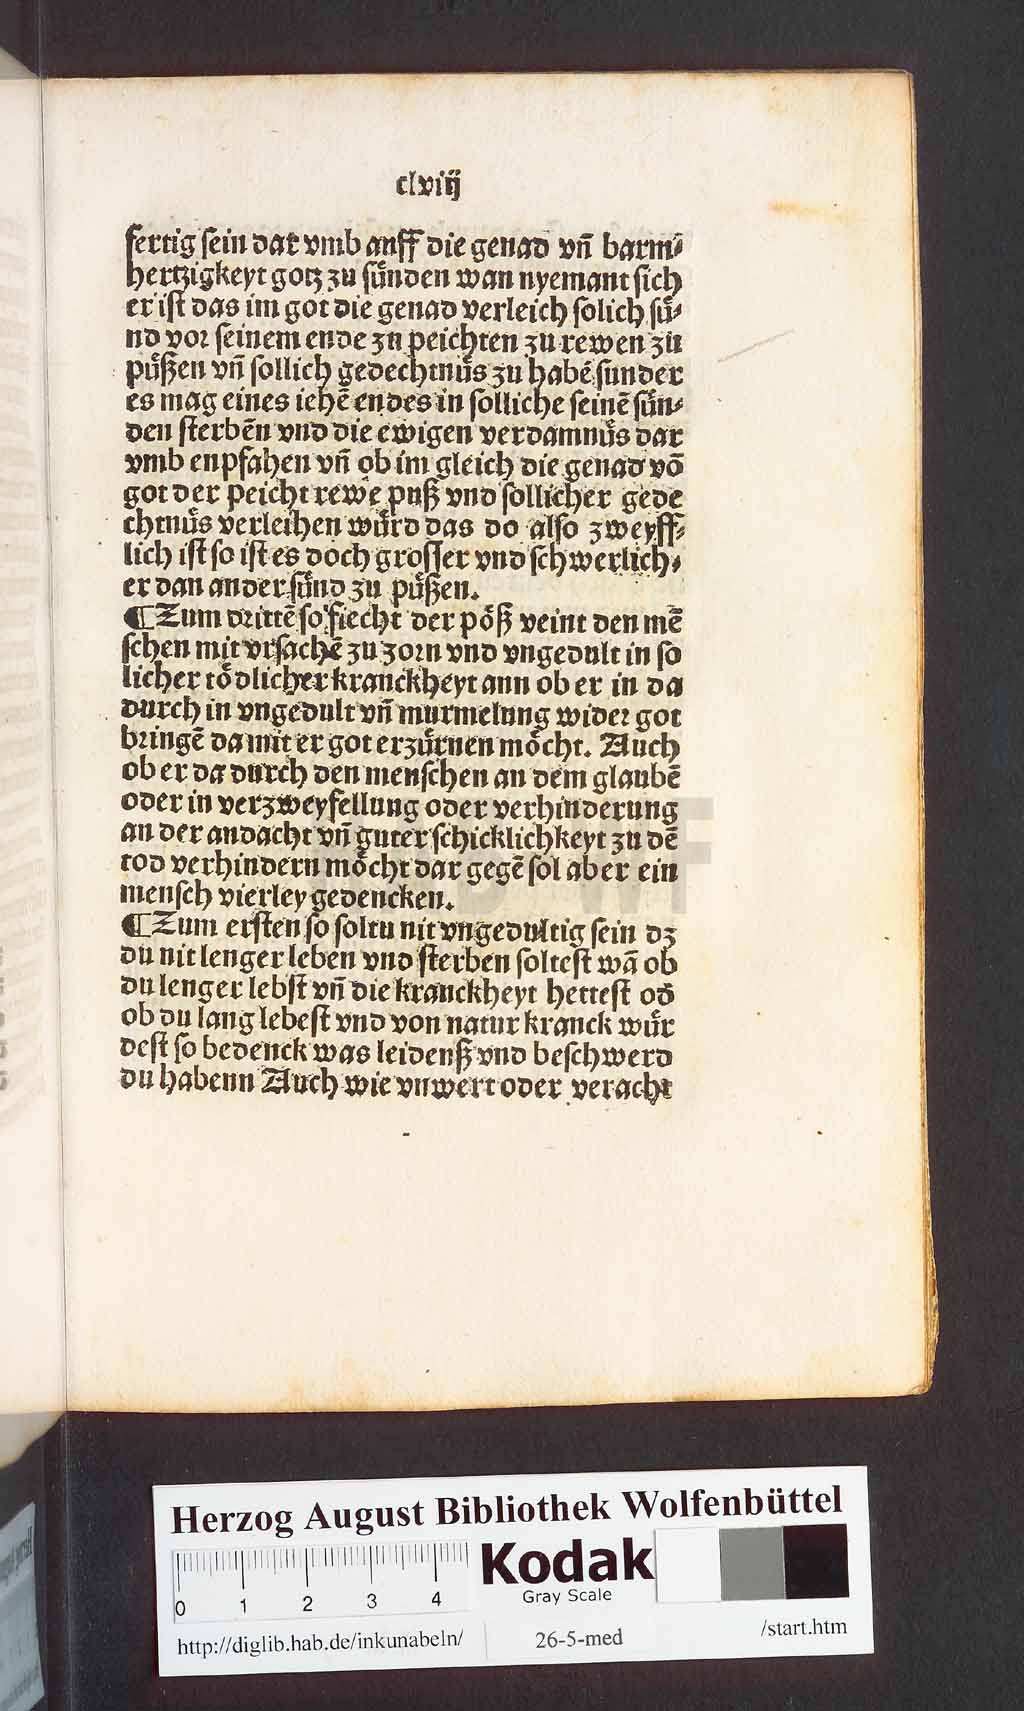 clviij
fertig sein dar vmb auff die genad vn̄ barm⸗
hertzigkeyt gotz zu sünden wan nyemant sich
er ist das im got die genad verleich solich sü⸗
nd vor seinem ende zu peichten zu rewen zu
püßen vn̄ sollich gedechtnüs zu habē sunder
es mag eines iehē endes in solliche seinē sün⸗
den sterbēn vnd die ewigen verdamnüs dar
vmb enpfahen vn̄ ob im gleich die genad vō
got der peicht rewe puß vnd sollicher gede
chtnüs verleihen würd das do also zweyff⸗
lich ist so ist es doch grosser vnd schwerlich⸗
er dan ander sünd zu püßen.
¶ Zum drittē so fiecht der pöß veint den mē
schen mit vrsachē zu zorn vnd vngedult in so
licher tödlicher kranckheyt ann ob er in da
durch in vngedult vn̄ murmelung wider got
bringē da mit er got erzürnen möcht. Auch
ob er da durch den menschen an dem glaubē
oder in verzweyfellung oder verhinderung
an der andacht vn̄ guter schicklichkeyt zu dē
tod verhindern möcht dar gegē sol aber ein
mensch vierley gedencken.
¶ Zum ersten so soltu nit vngedultig sein dz
du nit lenger leben vnd sterben soltest wā ob
du lenger lebst vn̄ die kranckheyt hettest od̄
ob du lang lebest vnd von natur kranck wür
dest so bedenck was leidenß vnd beschwerd
du habenn Auch wie vnwert oder veracht
HAB WF
Herzog August Bibliothek Wolfenbüttel
0 1 2 3 4
Kodak
Gray Scale
http://diglib.hab.de/inkunabeln/
26-5-med
/start.htm